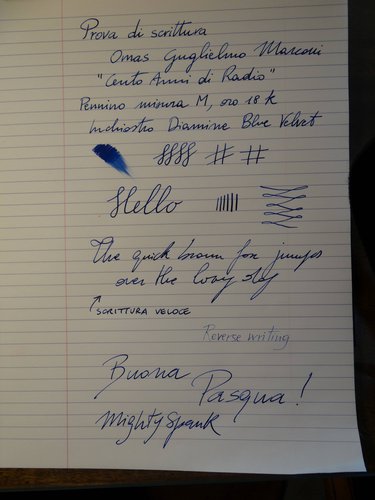 Prova di scrittura
Omas Guglielmo Marconi
"Cento Anni di Radio"
Pennino misura M, oro 18 k
Inchiostro Diamine Blue Velvet
ffff # #
Hello
The quick brown fox jumps
over the lazy dog
SCRITTURA VELOCE
Reverse writing
Buona
Pasqua!
MightySpank